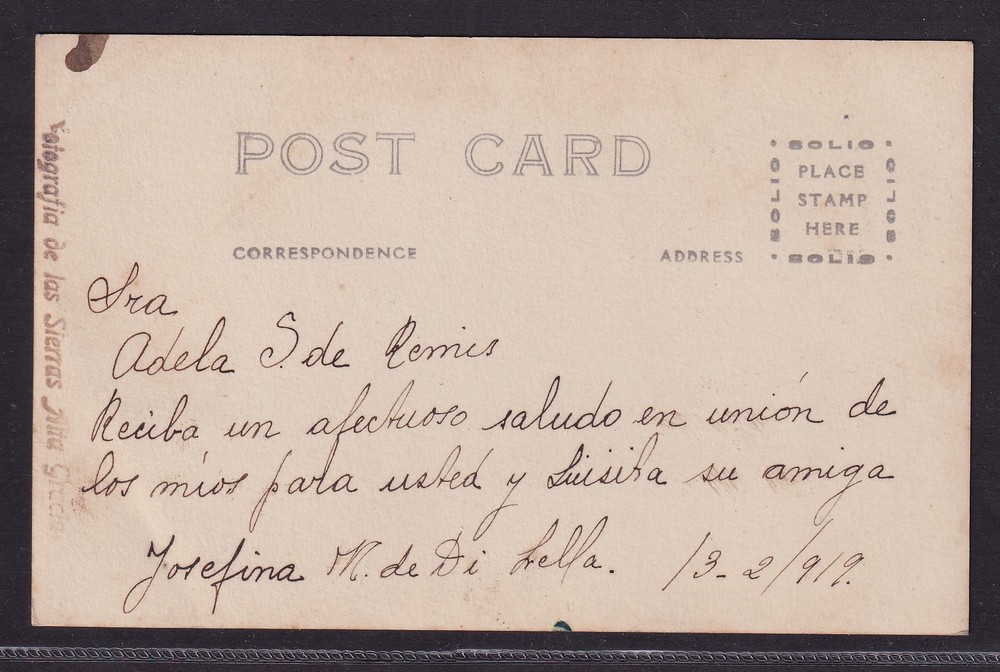 POST CARD
SOLIO
SOLIO
PLACE
STAMP
HERE
SOLIO
SOLIO
CORRESPONDENCE
ADDRESS
Fotografia de las Sierras Alta Gracia
Sra
Adela S. de Remis
Reciba un afectuoso saludo en unión de
los míos para usted y Luisita su amiga
Josefina M. de Di Lella. 13-2/919.